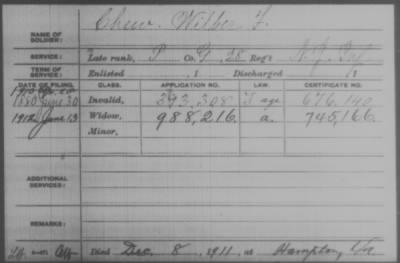 NAME OF SOLDIER: Chew, Wilber F.
SERVICE: Late rank, P Co. G, 28 Reg't N.J. Inf
TERM OF SERVICE: Enlisted , 1 Discharged , 1
DATE OF FILING. CLASS. APPLICATION NO. LAW. CERTIFICATE NO.
1880 June 30 Invalid, 393,308 676,140
1912 June 13 Widow, 988,216 a. 745,166
Minor,
ADDITIONAL SERVICES:
REMARKS:
Died Dec. 8, 1911, at Hampton, Va